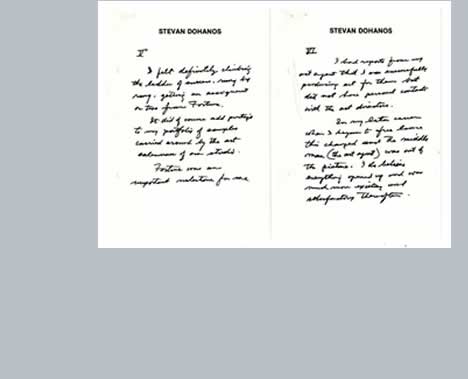 STEVAN DOHANOS
V
I felt definitely climbing
the ladder of success, rung by
rung, getting an assignment
or two from Fortune.
It did of course add prestige
to my portfolio of samples
carried around by the art
salesman of our studio.
Fortune was an
important milestone for me
STEVAN DOHANOS
VI
I had reports from my
art agent that I was successfully
producing art for them but
did not have personal contacts
with the art directors.
In my later career
when I began to free lance
this changed and the middle
man (the art agent) was out of
the picture. I do believe
everything opened up and was
much more exciting and
satisfactory thereafter.